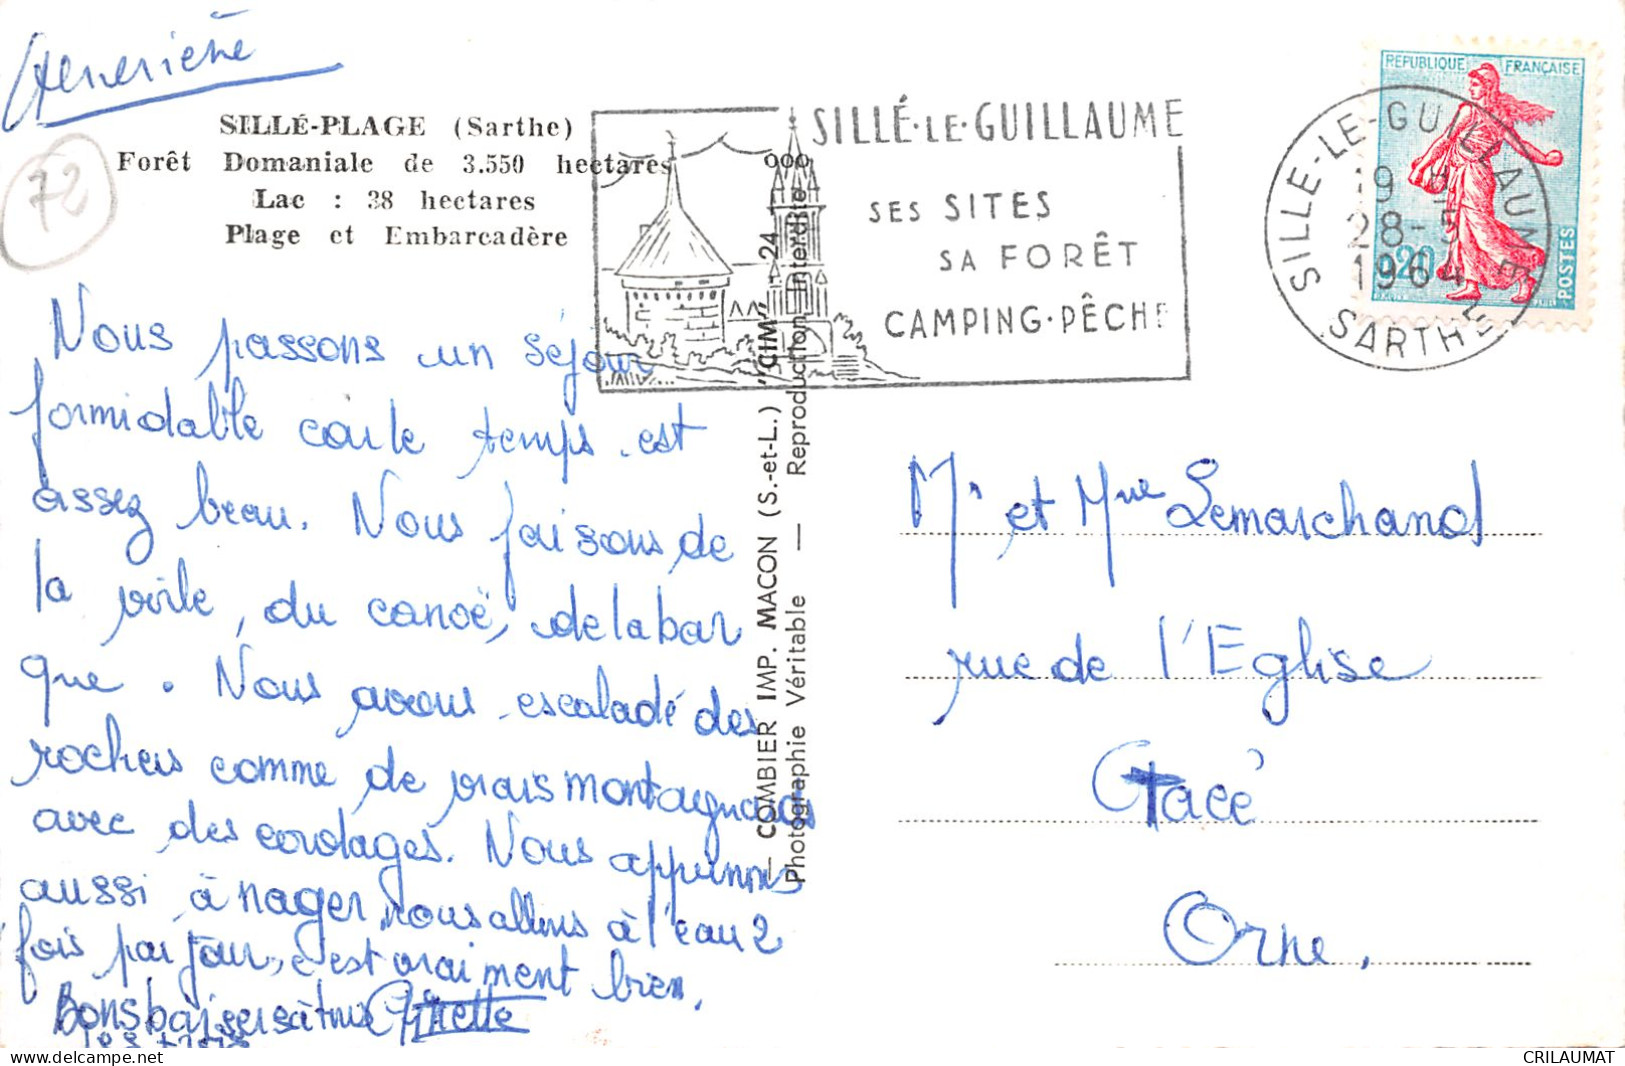 72
SILLÉ-PLAGE (Sarthe)
Forêt Domaniale de 3.550 hectares
Lac : 38 hectares
Plage et Embarcadère
SILLÉ·LE·GUILLAUME
SES SITES
SA FORÊT
CAMPING·PÊCHE
REPUBLIQUE FRANÇAISE
0,20
POSTES
SILLÉ-LE-GUILLAUME
19 H
28-5
1964
SARTHE
Nous passons un séjour
formidable car le temps est
assez beau. Nous faisons de
la voile, du canoë, de la bar
que. Nous avons escaladé des
rochers comme de vrais montagnards
avec des cordages. Nous apprenons
aussi à nager, nous allons à l'eau 2
fois par jour, c'est vraiment bien.
Bons baisers à tous Ginette
COMBIER IMP. MACON (S.-et-L.) "CIM" 24-1
Photographie Véritable — Reproduction Interdite
Mr et Mme Lemarchand
rue de l'Eglise
Gacé
Orne,
delcampe.net
CRILAUMAT